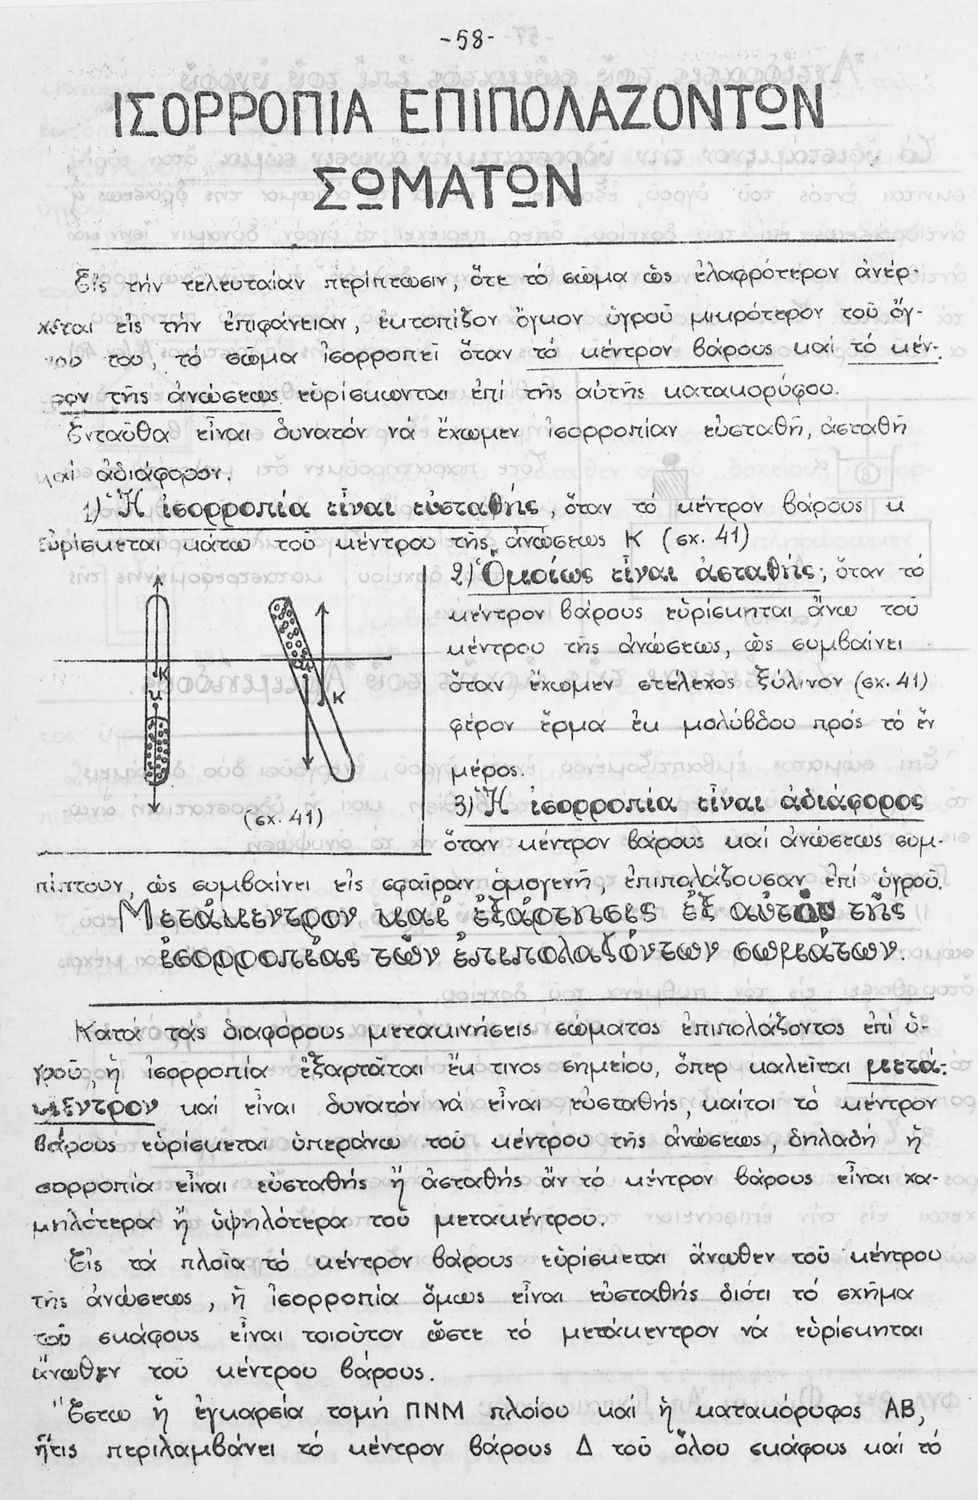 -58-
ΙΣΟΡΡΟΠΙΑ ΕΠΙΠΟΛΑΖΟΝΤΩΝ
ΣΩΜΑΤΩΝ
Εἰς τήν τελευταίαν περίπτωσιν, ὅτε τό σῶμα ὡς ἐλαφρότερον ἀνέρ-
χεται εἰς τήν ἐπιφάνειαν, ἐκτοπίζον ὄγκον ὑγροῦ μικρότερον τοῦ ὄγ-
κου του, τό σῶμα ἰσορροπεῖ ὅταν τό κέντρον βάρους καί τό κέν-
ρον τῆς ἀνώσεως εὑρίσκωνται ἐπί τῆς αὐτῆς κατακορύφου.
Ἐνταῦθα εἶναι δυνατόν νά ἔχωμεν ἰσορροπίαν εὐσταθῆ, ἀσταθῆ
καί ἀδιάφορον.
1) Ἡ ἰσορροπία εἶναι εὐσταθής, ὅταν τό κέντρον βάρους κ
εὑρίσκεται κάτω τοῦ κέντρου τῆς ἀνώσεως Κ (σχ. 41)
2) Ὁμοίως εἶναι ἀσταθής, ὅταν τό
κέντρον βάρους εὑρίσκηται ἄνω τοῦ
κέντρου τῆς ἀνώσεως, ὡς συμβαίνει
ὅταν ἔχωμεν στέλεχος ξύλινον (σχ. 41)
φέρον ἕρμα ἐκ μολύβδου πρός τό ἕν
μέρος.
3) Ἡ ἰσορροπία εἶναι ἀδιάφορος
ὅταν κέντρον βάρους καί ἀνώσεως συμ-
Κ
κ
κ
Κ
(σχ. 41)
πίπτουν, ὡς συμβαίνει εἰς σφαῖραν ὁμογενῆ, ἐπιπολάζουσαν ἐπί ὑγροῦ.
Μετάκεντρον καί ἐξάρτησις ἐξ αὐτοῦ τῆς
ἰσορροπίας τῶν ἐπιπολαζόντων σωμάτων.
Κατά τάς διαφόρους μετακινήσεις σώματος ἐπιπολάζοντος ἐπί ὑ-
γροῦ, ἡ ἰσορροπία ἐξαρτᾶται ἔκ τινος σημείου, ὅπερ καλεῖται μετά-
κεντρον καί εἶναι δυνατόν νά εἶναι εὐσταθής, καίτοι τό κέντρον
βάρους εὑρίσκεται ὑπεράνω τοῦ κέντρου τῆς ἀνώσεως, δηλαδή ἡ
σορροπία εἶναι εὐσταθής ἤ ἀσταθής ἄν τό κέντρον βάρους εἶναι χα-
μηλότερα ἤ ὑψηλότερα τοῦ μετακέντρου.
Εἰς τά πλοῖα τό κέντρον βάρους εὑρίσκεται ἄνωθεν τοῦ κέντρου
τῆς ἀνώσεως, ἡ ἰσορροπία ὅμως εἶναι εὐσταθής διότι τό σχῆμα
τοῦ σκάφους εἶναι τοιοῦτον ὥστε τό μετάκεντρον νά εὑρίσκηται
ἄνωθεν τοῦ κέντρου βάρους.
Ἔστω ἡ ἐγκαρσία τομή ΠΝΜ πλοίου καί ἡ κατακόρυφος ΑΒ,
ἥτις περιλαμβάνει τό κέντρον βάρους Δ τοῦ ὅλου σκάφους καί τό